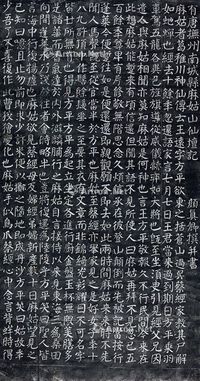 有唐撫州南城縣麻姑山仙壇記 顏真卿撰并書
麻姑者葛稚川神仙傳云王遠字方平欲東之括蒼山過吳蔡經家教其尸解
如蛇蟬也經去十餘年忽還語家言七月七日王君當來過到期日方平乘羽
車駕五龍各異色旌旗導從威儀赫弈如大將也既至坐須臾引見經父兄因
遣人與麻姑相聞亦莫知麻姑是何神也言王方平敬報久不行民間今來在
此想麻姑能暫來有頃信還但聞其語不見所使人曰麻姑再拜不見忽已五
百餘年尊卑有序脩敬無階思念久煩信承在彼登山顛倒而先被記當按行
蓬萊今便暫往如是便還還即親觀願不即去如此兩時間麻姑來來時不先
聞人馬聲既至從官當半於方平也麻姑至蔡經亦舉家見之是好女子年十
八九許頂中作髻餘髮垂之至要其衣有文章而非錦綺光彩耀日不可名字
皆世所無有也得見方平方平為起立坐定各進行廚金盤玉杯無限美膳多
是諸華而香氣達於內外擗麟脯行之麻姑自言接侍以來見東海三為桑田
向間蓬萊水乃淺於往者會時略半也豈將復還為陵陸乎方平笑曰聖人皆
言海中行復揚塵也麻姑欲見蔡經母及婦經弟婦新產數十日麻姑望見之
已知曰噫且止勿前即求少許米便以擲之墮地即成丹沙方平笑曰姑故年
少吾了不喜復作此曹狡獪變化也麻姑手似鳥爪蔡經心中念言背蟬時得